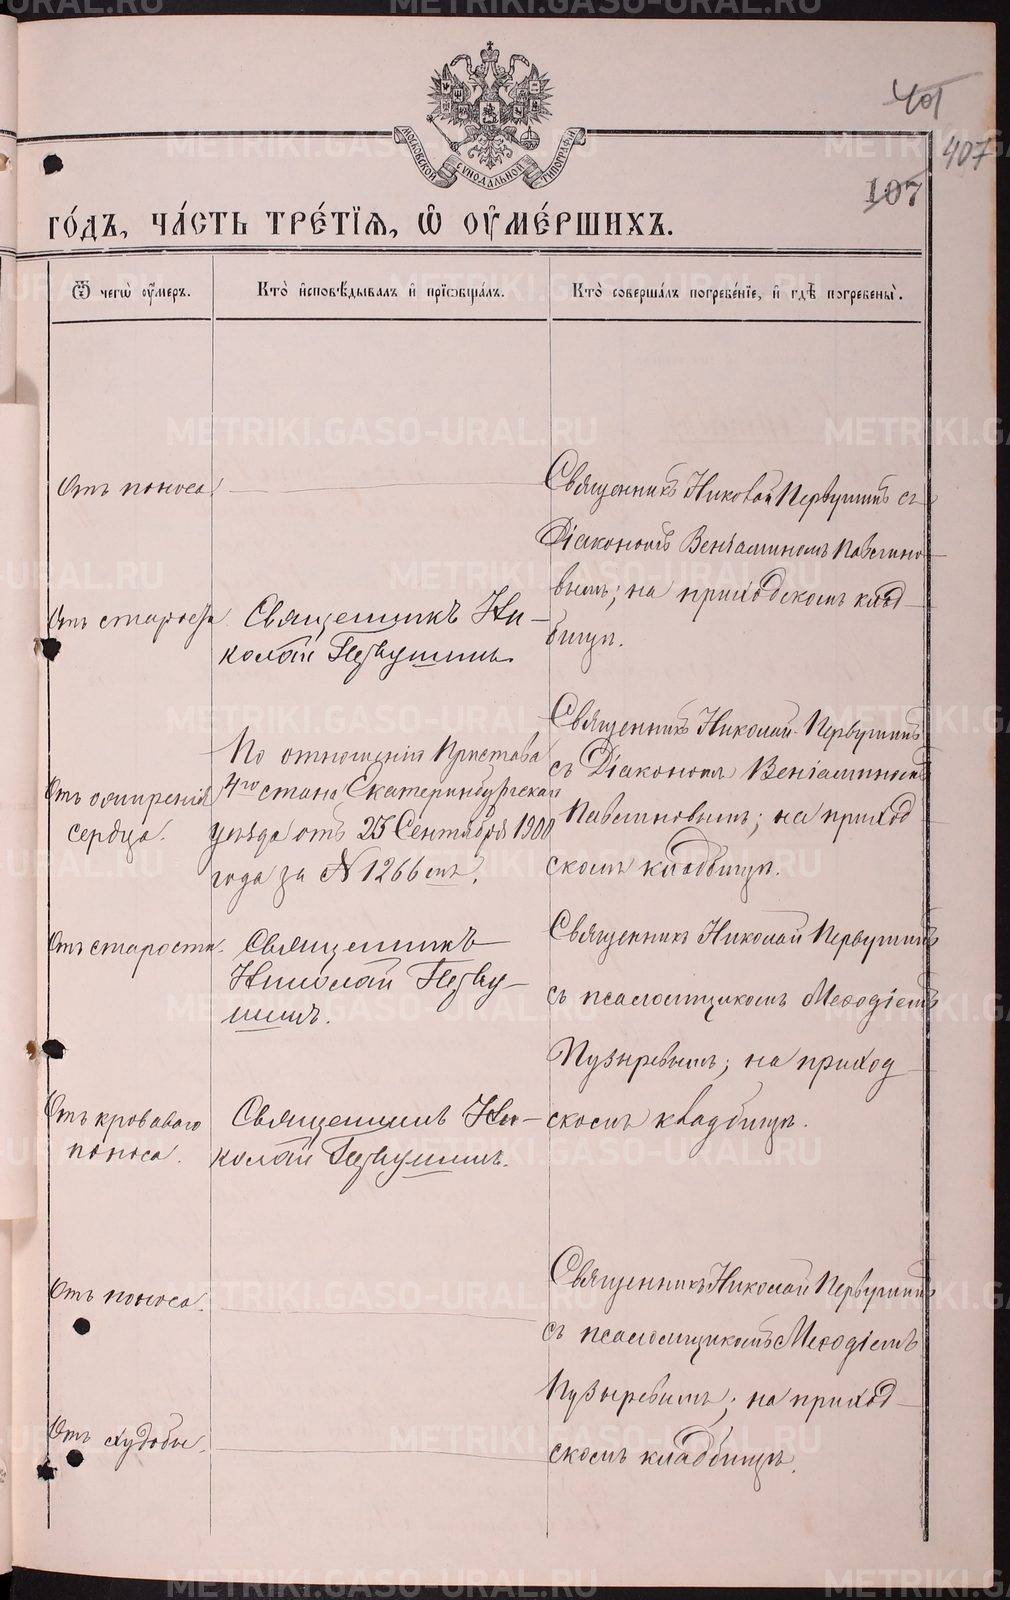 METRIKI.GASO-URAL.RU
МОСКОВСКОЙ СѴНОДАЛЬНОЙ ТИПОГРАФІИ
407
107
го́дъ, ча́сть тре́тїѧ, ѡ҆ ᲂу҆ме́ршихъ.
Ѿ чегѡ̀ ᲂу҆́меръ.
Кто̀ и҆сповѣ́дывалъ и҆ прїѡбща́лъ.
Кто̀ соверша́лъ погребе́нїе, и҆ гдѣ̀ погребены̀.
Отъ поноса.
Священникъ Николай Первушинъ съ
Діакономъ Веніаминомъ Павлино-
вымъ; на приходскомъ клад-
бищѣ.
Отъ старости
Священникъ Ни-
колай Первушинъ.
Отъ ожирения
сердца.
По отношенію Пристава
4го стана Екатеринбургскаго
уѣзда отъ 25 Сентября 1900
года за № 1266мъ.
Священникъ Николай Первушинъ
съ Діакономъ Веніаминомъ
Павлиновымъ; на приход
скомъ кладбищѣ.
Отъ старости.
Священникъ
Николай Перву-
шинъ.
Священникъ Николай Первушинъ
съ псаломщикомъ Меѳодіемъ
Пузыревымъ; на приход
скомъ кладбищѣ.
Отъ кроваваго
поноса.
Священникъ Ни-
колай Первушинъ.
Отъ поноса.
Священникъ Николай Первушинъ
съ псаломщикомъ Меѳодіемъ
Пузыревымъ; на приход-
скомъ кладбищѣ.
Отъ худобы.